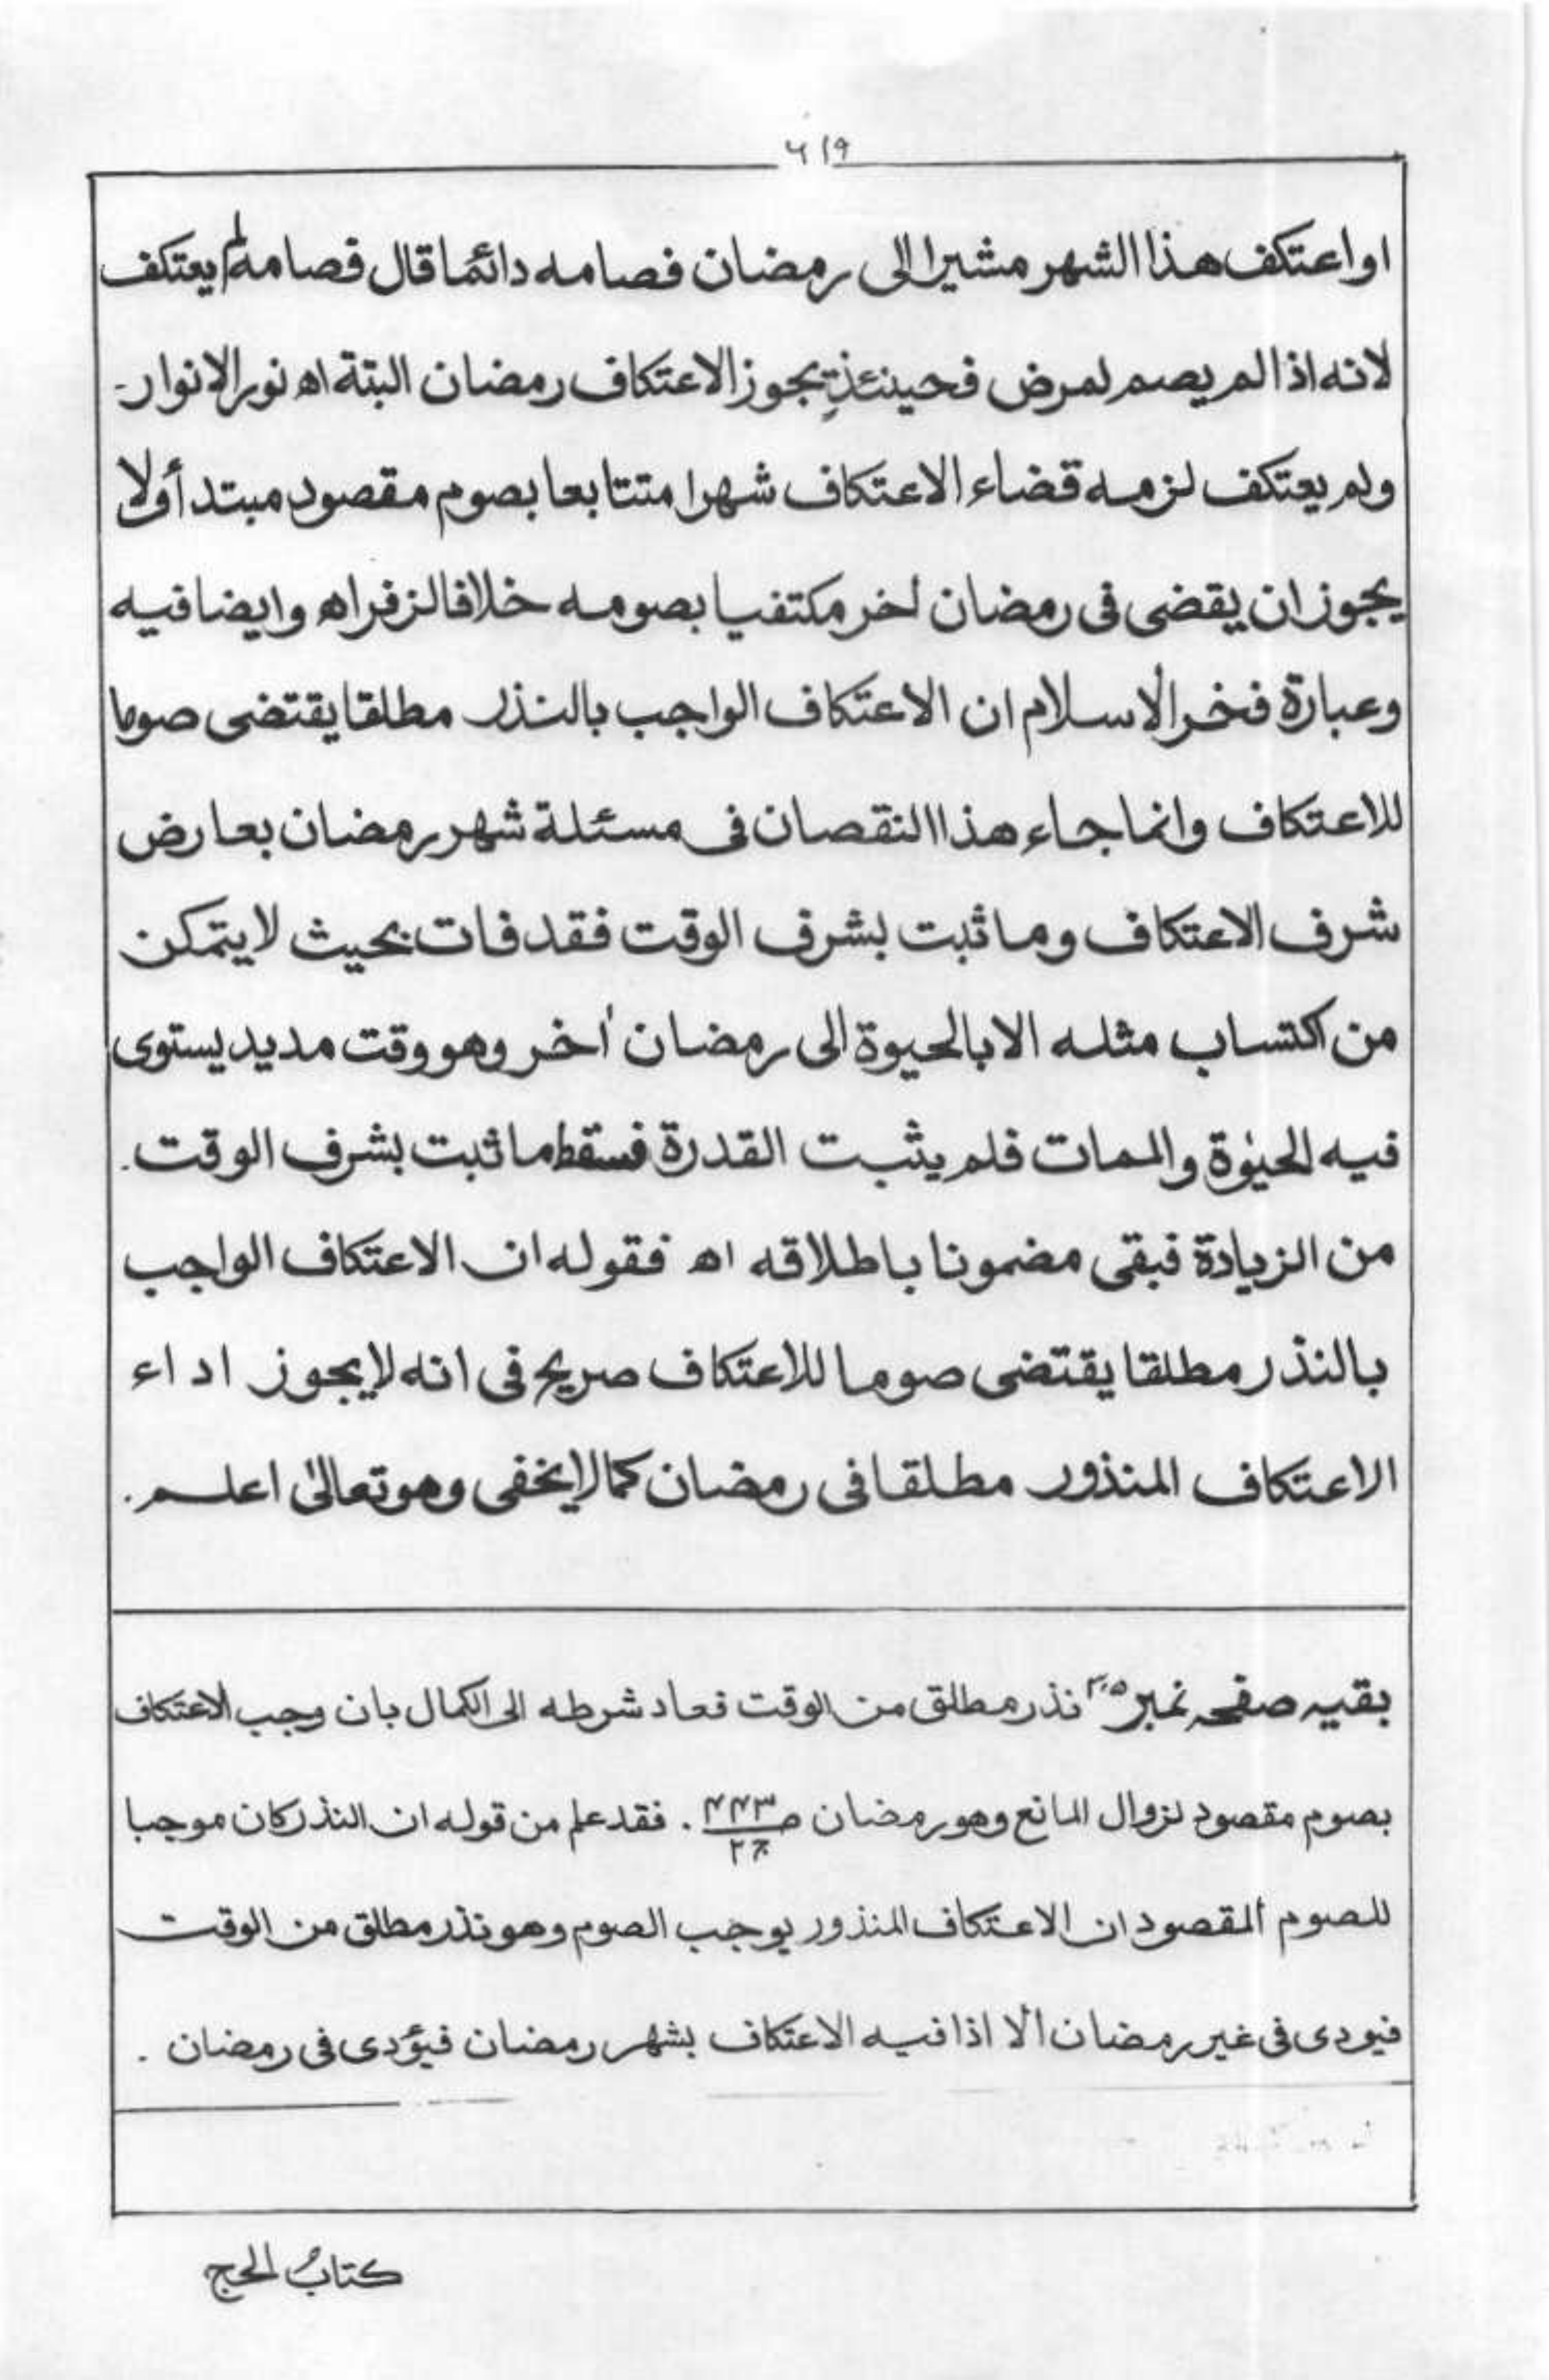 ٦١٩
اواعتكف هذا الشهر مشيرا الى رمضان فصامه دائما قال فصامه لم يعتكف
لانه اذا لم يصم لمرض فحينئذٍ يجوز الاعتكاف رمضان البتة اه نور الانوار-
ولم يعتكف لزمه قضاء الاعتكاف شهرا متتابعا بصوم مقصود مبتدأ ولا
يجوز ان يقضى فى رمضان أخر مكتفيا بصومه خلافا لزفر اه وايضا فيه
وعبارة فخر الاسلام ان الاعتكاف الواجب بالنذر مطلقا يقتضى صوما
للاعتكاف وانما جاء هذا النقصان فى مسئلة شهر رمضان بعارض
شرف الاعتكاف وما ثبت بشرف الوقت فقد فات بحيث لا يتمكن
من اكتساب مثله الا بالحيوة الى رمضان أخر وهو وقت مديد يستوى
فيه الحيٰوة والممات فلم يثبت القدرة فسقط ما ثبت بشرف الوقت.
من الزيادة فبقى مضمونا باطلاقه اه فقوله ان الاعتكاف الواجب
بالنذر مطلقا يقتضى صوما للاعتكاف صريح فى انه لا يجوز اداء
الاعتكاف المنذور مطلقا فى رمضان كما لا يخفى وهو تعالىٰ اعلم.
بقيه صفحہ نمبر ٣٠٥ نذر مطلق من الوقت فعاد شرطه الى الكمال بان وجب الاعتكاف
بصوم مقصود لزوال المانع وهو رمضان ص ٤٤٣ ج ٢. فقد علم من قوله ان النذر كان موجبا
للصوم المقصود ان الاعتكاف المنذور يوجب الصوم وهو نذر مطلق من الوقت
فيودى فى غير رمضان الا اذا فيه الاعتكاف بشهر رمضان فيؤدى فى رمضان .
كتابُ الحج